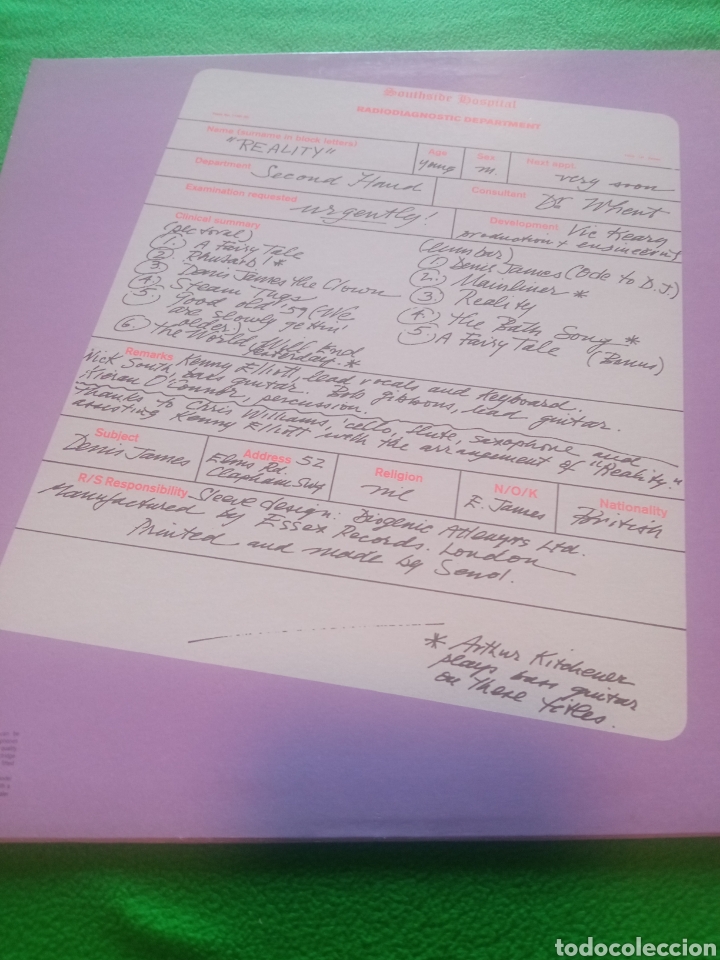 Southside Hospital
RADIODIAGNOSTIC DEPARTMENT
Name (surname in block letters) Age Sex Next appt.
"REALITY" young m. very soon
Department Second Hand Consultant Dr Whent
Examination requested urgently! Development Vic Keary
production + engineering
Clinical summary
(pictorial) (number)
1. A Fairy Tale (1) Denis James (Ode to D.J.)
2. Rhubarb! * 2. Mainliner *
3 Denis James the Clown 3 Reality
4. Steam Tugs 4. The Bath Song *
5. Good old '59 (We 5. A Fairy Tale (Bonus)
are slowly gettin'
older.)
6. The World Will End
Yesterday. *
Remarks Kenny Elliott, lead vocals and keyboard.
Nick South, bass guitar. Bob Gibbons, lead guitar.
Kieran O'Connor, percussion.
Thanks to Chris Williams, 'cello, flute, saxophone and
assisting Kenny Elliott with the arrangement of "Reality."
Subject Address 52 Religion N/O/K Nationality
Denis James Elms Rd. nil E. James British
Clapham SW4
R/S Responsibility Sleeve design. Biogenic Ltd.
Manufactured by Essex Records. London
Printed and made by Senol.
* Arthur Kitchener
plays bass guitar
on these titles.
todocoleccion